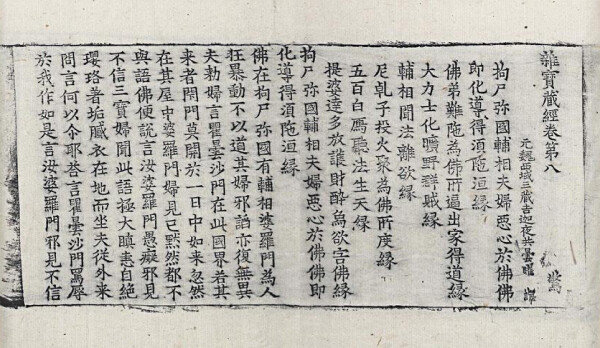 雜寶藏經卷第八
元魏西域三藏吉迦夜共曇曜 譯
拘尸弥國輔相夫婦惡心於佛佛
即化導得須陁洹緣
佛弟難陁為佛所逼出家得道緣
大力士化曠野群賊緣
輔相聞法離欲緣
尼乹子投火聚為佛所度緣
五百白鴈聽法生天緣
提婆達多放護財醉象欲害佛緣
拘尸弥國輔相夫婦惡心於佛佛即
化導得須陁洹緣
佛在拘尸弥國有輔相婆羅門為人
狂暴動不以道其婦邪諂亦復無異
夫勑婦言瞿曇沙門在此國界若其
来者閇門莫開於一日中如来忽然
在其屋中婆羅門婦見已黙然都不
與語佛便說言汝婆羅門愚癡邪見
不信三寶婦聞此語極大瞋恚自絕
瓔珞著垢膩衣在地而坐夫從外来
問言何以尒耶荅言瞿曇沙門罵辱
於我作如是言汝婆羅門邪見不信